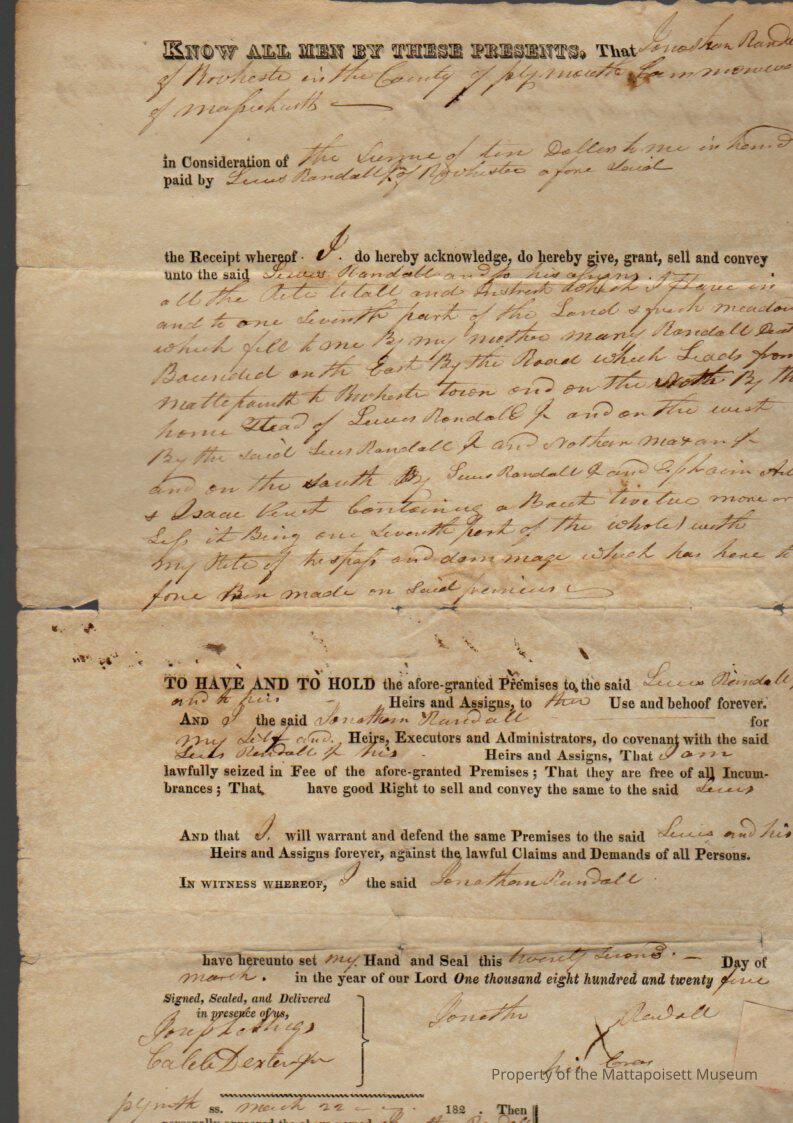 KNOW ALL MEN BY THESE PRESENTS, That Jonathan Rand
of Rochester in the County of plymouth Commonwe
of
in Consideration of the Summe of ten Dollers to me in hand
paid by Lewis Randall Jr of Rochester afore Said
the Receipt whereof I do hereby acknowledge, do hereby give, grant, sell and convey
unto the said Lewis Randall and to his
all the Rite titall and which I have in
and to one Seventh part of the Land & fresh meadow
which fell to me By my mother mary Randall
Bounded on the East By the Road which Leads from
to Rocheste town and on the North By th
home Stead of Lewis Randall Jr and on the west
By the said Lewis Randall Jr and Nathan
and on the South By Lewis Randall Jr and Ephraim
& Isaac Containing a Bout twelve more or
Less it Being one Seventh part of the whole with
my Rite of trespass and dammage which has here to
fore Bin made on Said
TO HAVE AND TO HOLD the afore-granted Premises to the said Lewis Randall
and to his Heirs and Assigns, to Use and behoof forever.
AND I the said Jonathan Randall for
my Self and Heirs, Executors and Administrators, do covenant with the said
Lewis Randall Jr his Heirs and Assigns, That I am
lawfully seized in Fee of the afore-granted Premises; That they are free of all Incum-
brances; That have good Right to sell and convey the same to the said Lewis
AND that I will warrant and defend the same Premises to the said Lewis and his
Heirs and Assigns forever, against the lawful Claims and Demands of all Persons.
IN WITNESS WHEREOF, I the said Jonathan Randall
have hereunto set my Hand and Seal this twenty Second Day of
march. in the year of our Lord One thousand eight hundred and twenty five
Signed, Sealed, and Delivered
in presence of us,
Jonathn X Randall
Caleb Dexter Jr
his Cross
plymth ss. march 22 182 . Then
Property of the Mattapoisett Museum